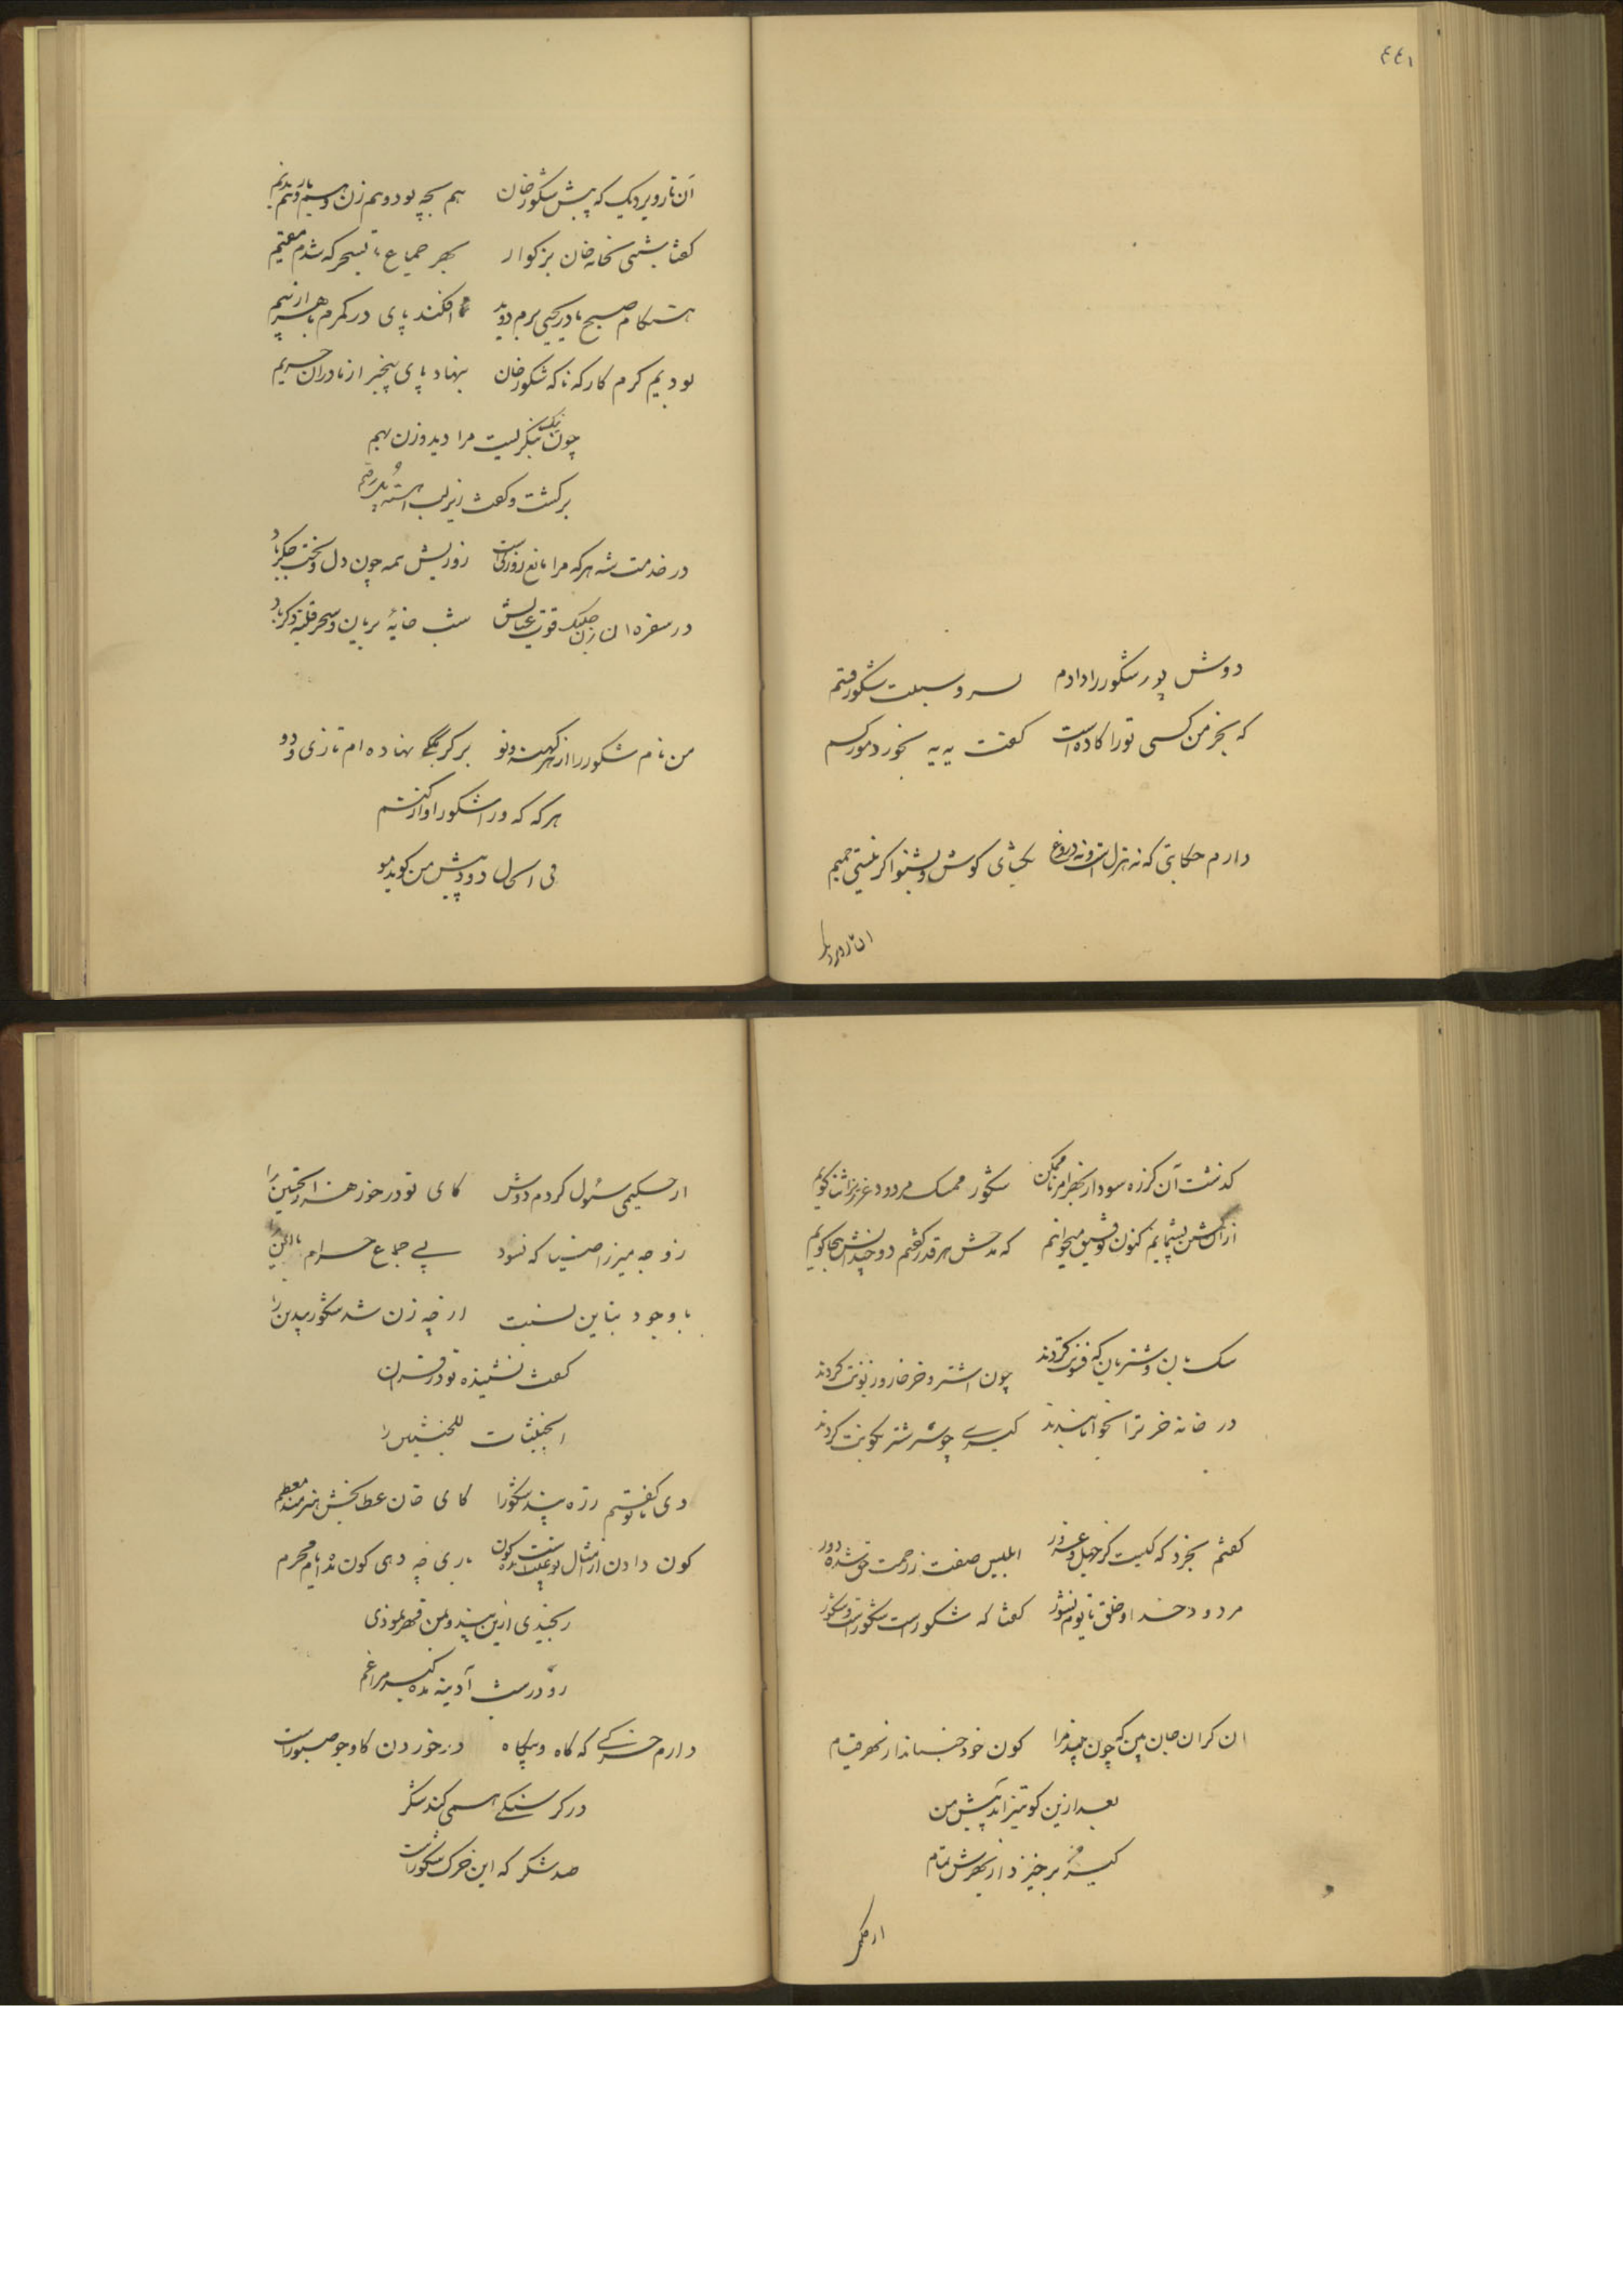 ٤٤١
دوش پور شکور را دادم بسر و سبلت شکور قسم
که بجز من کسی تو را کاده است گفت یه یه بخورد مور کسم
دارم حکایتی که نه هزل است و نه دروغ بگشای گوش و بشنو اگر نیستی
ان تاروردیک
آن تاروردیک که پیش شکور خان هم بچه بود و هم زن و
گفتا شبی بخانه خان بزکوار بهر جماع تا بسحر که شدم مقیم
هنگام صبح مادر یحیی برم دوید افکند پای در کمرم
بودیم گرم کار که ناگه شکور خان بنهاد پای بیخبر از در ان حریم
چون نیک بنگریست مرا دید و زن بهم
برگشت و گفت زیر لب آهسته
در خدمت شه هرکه مرا مانع روزیست روزیش همه چون دل و لخت جگر باد
در سفره ان زن قوت عیالش شب خایهٔ بریان و سحر قلیه ذکر باد
من نام شکور را از کهنه و نو بر کربگکی نهاده ام تازی و دو
هر که که ورا شکور اواز کنم
فی الحال دود پیش من گوید مو
گذشت آن کز ره سودا شکور ممسک مردود غر را ثنا گویم
از آن گفتن پشیمانم کنون توفیق میخواهم که مدحش هر قدر گفتم دو چندانش هجا گویم
سک بان و شتربان که فزونت کردند چون اشتر و خر خار و زبونت کردند
در خانه خر ترا بخوابانیدند کیری چو سر شتر بکونت کردند
گفتم بخرد که کیست کز جهل و غرور ابلیس صفت ز رحمت حق شده دور
مردود خدا و خلق تا یوم نشور گفتا که شکور است شکور است و شکور
ان گران جان بین که چون بیند مرا کون خود جنباند از بهر قیام
بعد ازین کو نیز اید پیش من
کیر من برخیزد از بهرش تمام
از حکیم
از حکیمی سئول کردم دوش کای تو در خورد هزار تحسین را
زوجه میرزا ضیا که نبود پی جماع حرام
با وجود بتاین نسبت از چه زن شد شکور بیدین را
گفت نشنیده تو در قران
الخبیثات للخبیثین را
دی گفتم رژه پند شکور را کای خان عطا بخش هنرمند معظم
کون دادن از امثال تو باری چه دهی کون مه ایام محرم
رنجیدی ازین پند و بمن قهر نمودی
رو در شب آدینه بده مرا غم
دارم خرکی که گاه و بیگاه در خوردن کاه و جو صبور است
در گرسنگی همی کند شکر
صد شکر که این خرک شکور است